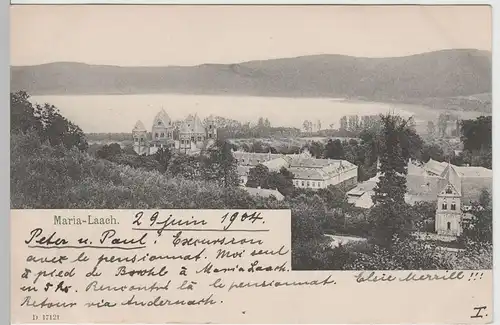 Maria-Laach. 29 Juin 1904.
Peter u. Paul. Excursion
avec le pensionnat. Moi seul
à pied de Brohl à Maria Laach.
Rencontré là le pensionnat. Elsie Merrill!!!
Retour via Andernach.
D 17121
I.